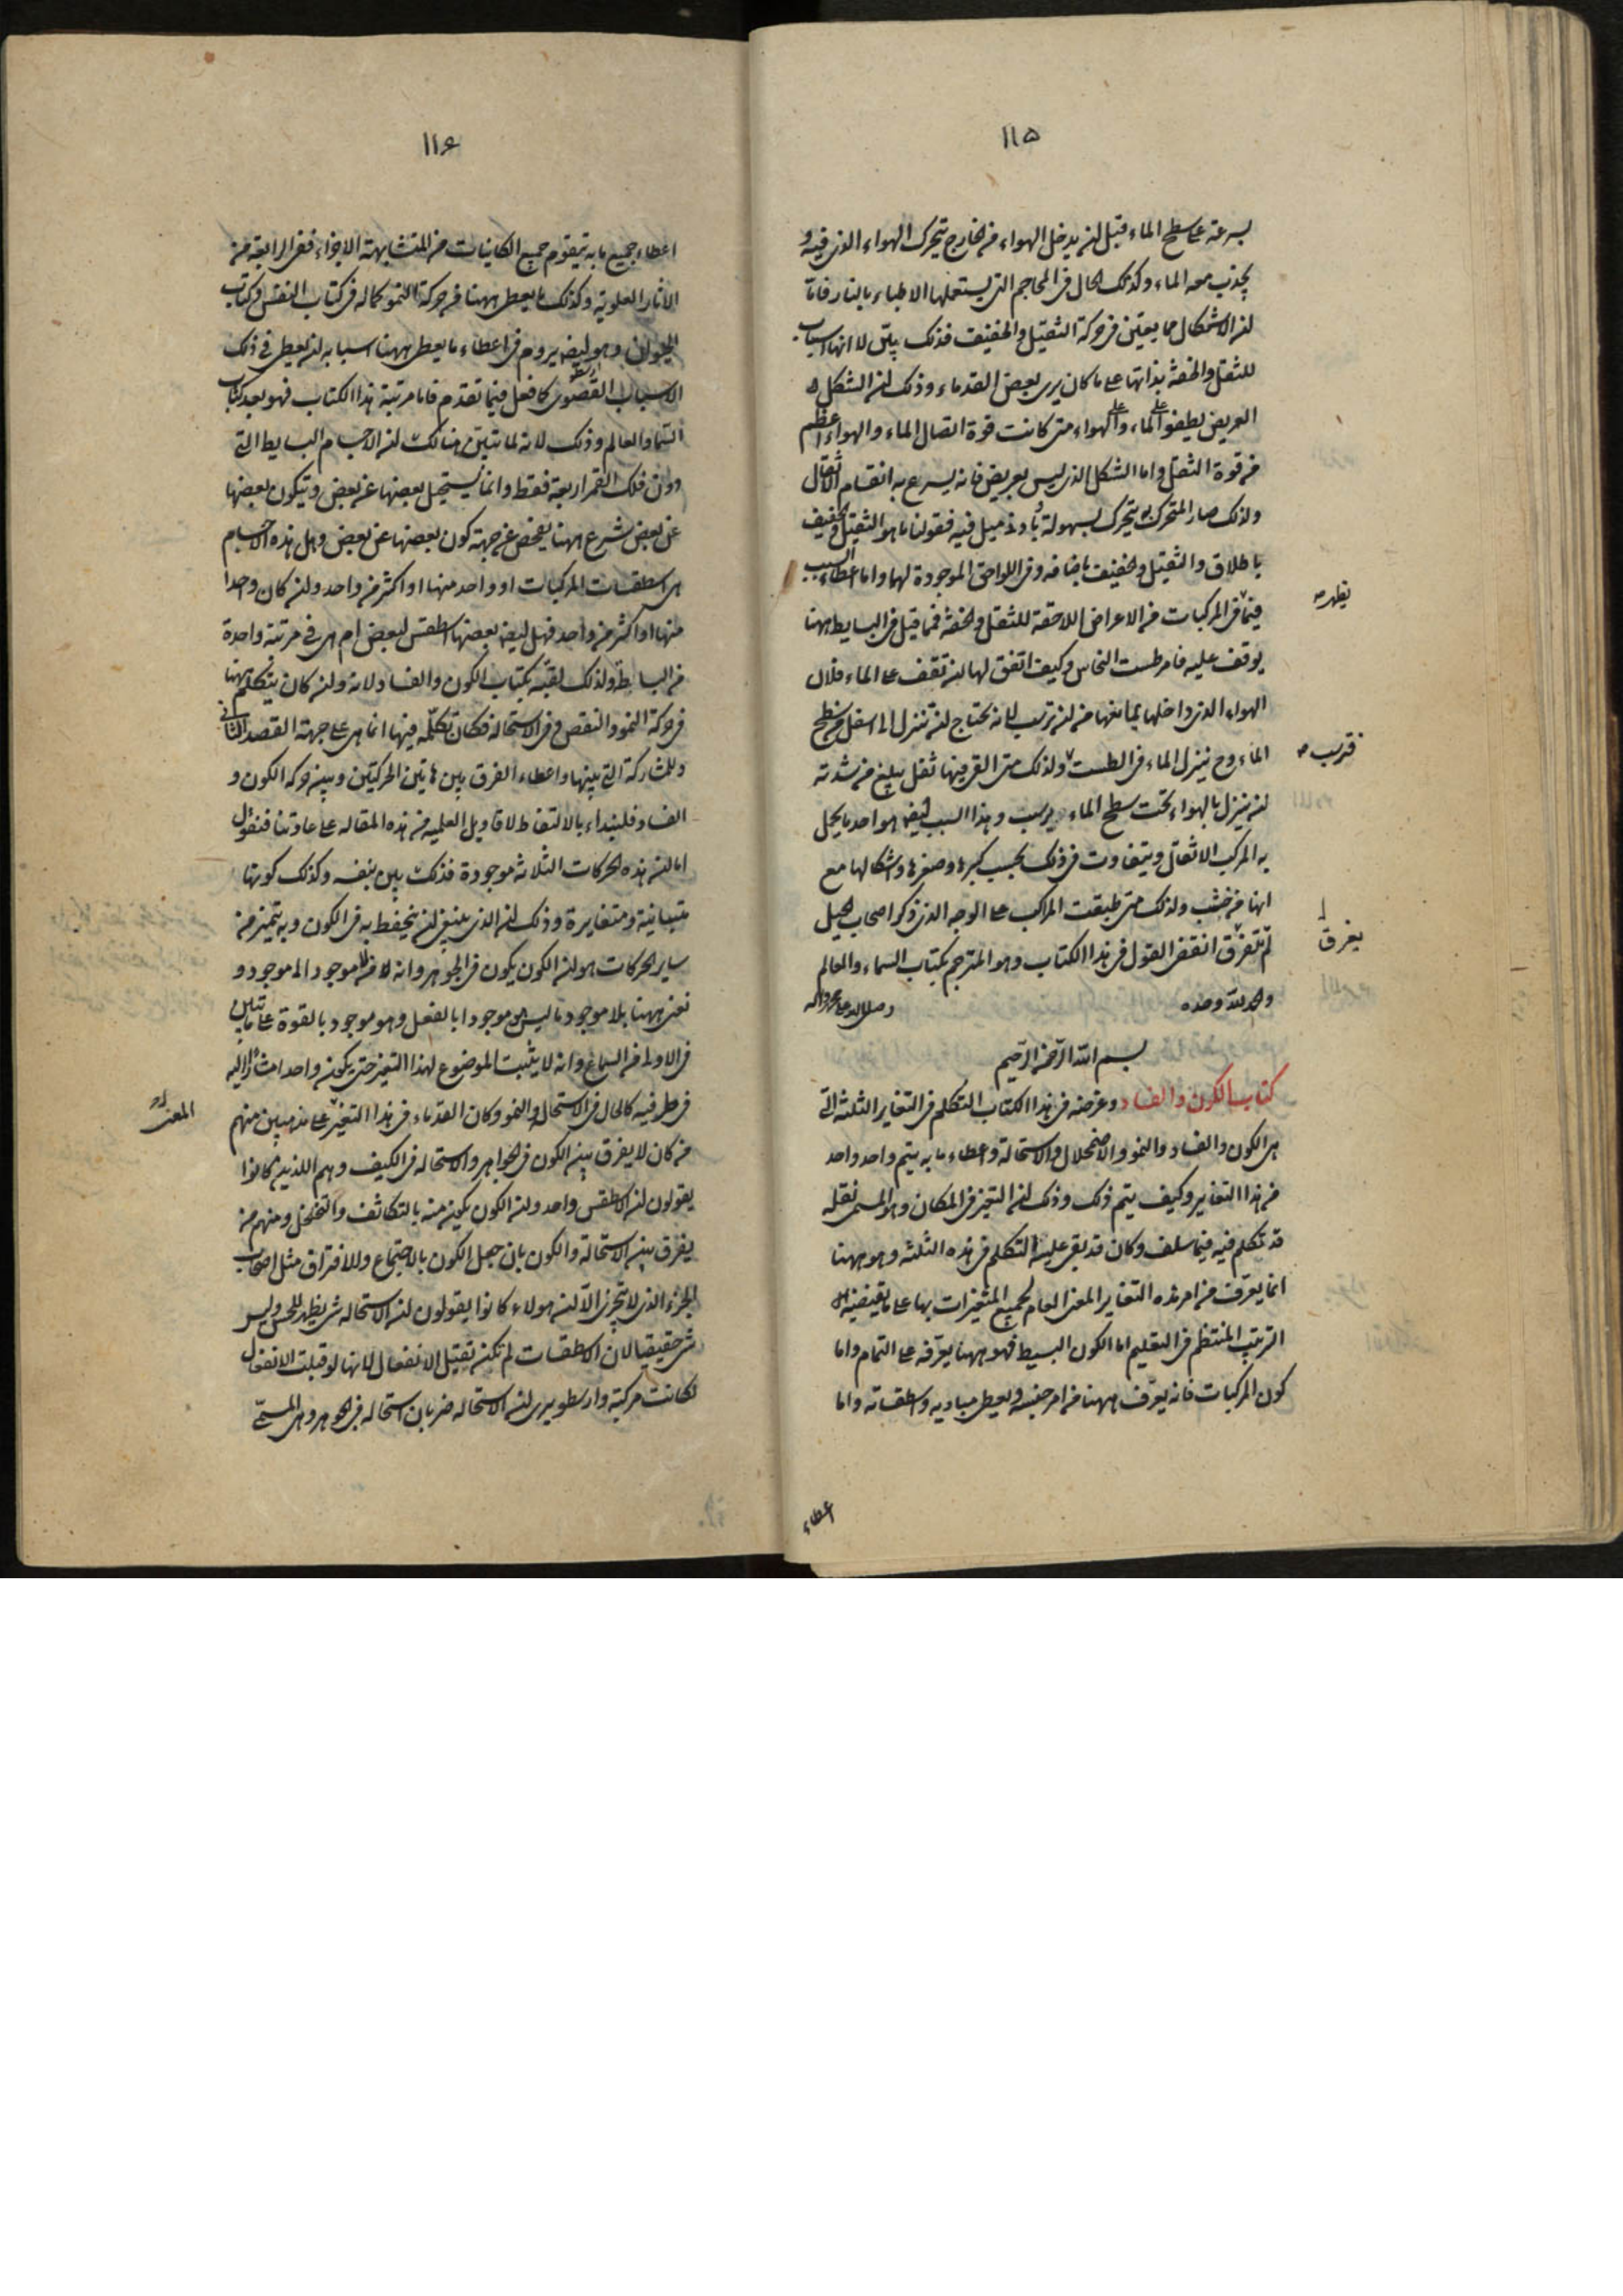 ١١۵
بسرعة على سطح الماء قبل ان يدخل الهواء من خارج تتحرك الهواء الذى فيه و
يجذب معه الماء وكذلك الحال فى المحاجم التى يستعملها الاطباء بالنار فاما
ان الاشكال مما يعين فى حركة الثقيل والخفيف فذلك بيّن لا انها اسباب
للثقل والخفة بذاتها على ما كان يرى بعض القدماء وذلك ان الشكل
العريض يطفو على الماء وعلى الهواء متى كانت قوة اتصال الماء والهواء اعظم
من قوة الثقل واما الشكل الذى ليس بعريض فانه يسرع به انقسام الاثقال
ولذلك صار المتحرك به يتحرك بسهولة فقولنا ما هو الثقيل والخفيف
باطلاق والثقيل والخفيف باضافه وفى اللواحق الموجودة لهما واما اعطاء السبب
فيما فى المركبات من الاعراض اللاحقة للثقل والخفة فمما قيل فى البسايط ههنا
يوقف عليه فامر طست النحاس وكيف اتفق لها ان تقف على الماء فلان
الهواء الذى داخلها يمانعها من ان ترسب لانه يحتاج ان تنزل الى اسفل من سطح
الماء وح ينزل الماء فى الطست ولذلك متى القى فيها ثقل يبلغ من شدته
ان ينزل بالهواء تحت سطح الماء يرسب وهذا السبب ايضا هو احد ما يحمل
به المركب الاثقال ويتفاوت فى ذلك بحسب كبرها وصغرها واشكالها مع
انها من خشب ولذلك متى طبقت المراكب على الوجه الذى ذكر اصحاب الحيل
لم تغرق انقضى القول فى هذا الكتاب وهو المترجم بكتاب السماء والعالم
والحمد لله وحده وصلى الله على محمد واله
بسم الله الرحمن الرحيم
كتاب الكون والفساد وغرضه فى هذا الكتاب التكلم فى التغاير الثلثة التى
هى الكون والفساد والنمو والاضمحلال والاستحالة واعطاء ما به يتم واحد واحد
من هذا التغاير وكيف يتم ذلك وذلك ان التغير فى المكان وهو المسمى نقله
قد تكلم فيه فيما سلف وكان قد بقى عليه التكلم فى هذه الثلثه وهو ههنا
انما يعرف من امر هذه التغاير المعنى العام لجميع المتغيرات بها على ما يقتضيه
الترتيب المنتظم فى التعليم اما الكون البسيط فهو ههنا يعرفه على التمام واما
كون المركبات فانه يعرف ههنا من امر جنسه ويعطى مباديه واسطقساته واما
اعطاء
يظهر
فترسب
يغرق
١١۶
اعطاء جميع ما به يتقوم جميع الكاينات من المتشابهة الاجزاء ففى الرابعة من
الاثار العلوية وكذلك ما يعطى ههنا من حركة النمو كماله فى كتاب النفس وكتاب
الحيوان وهو ايضا يروم فى اعطاء ما يعطى ههنا اسبابه ان يعطى فى ذلك
الاسباب القصوى كما فعل فيما تقدم فاما مرتبة هذا الكتاب فهو بعد كتاب
السما والعالم وذلك لانه لما تبين هنالك ان الاجسام البسايط التى
دون فلك القمر اربعة فقط وانما يستحيل بعضها عن بعض ويتكون بعضها
عن بعض شرع ههنا يفحص عن جهة كون بعضها عن بعض وهل هذه الاجسام
هى اسطقسات المركبات او واحد منها او اكثر من واحد وان كان واحدا
منها او اكثر من واحد فهل ايضا بعضها اسطقس لبعض ام هى فى مرتبة واحدة
من البساطة ولذلك لقبه بكتاب الكون والفساد لانه وان كان يتكلم ههنا
فى حركة النمو والنقص وفى الاستحالة فكان تكلمه فيها انما هى على جهة القصد الثانى
وللمشاركة التى بينها واعطاء الفرق بين هاتين الحركتين وبين حركه الكون و
الفساد فلنبداء بالالتقاط لاقاويل العلمية من هذه المقاله على عادتنا فنقول
اما ان هذه الحركات الثلاثه موجودة فذلك بين بنفسه وكذلك كونها
متباينة ومتغايرة وذلك ان الذى ينبغى ان يحفظ به فى الكون وبه يتميز من
ساير الحركات هو ان الكون يكون فى الجوهر وانه من لا موجود الى موجود و
نعنى ههنا بلا موجود ما ليس موجودا بالفعل وهو موجود بالقوة على ما تبين
فى الاولى من السماع وانه لا يثبت الموضوع لهذا التغير حتى يكون واحدا مشارا اليه
فى طرفيه كالحال فى الاستحالة والنمو وكان القدماء فى هذا التغير على مذهبين منهم
من كان لا يفرق بين الكون فى الجواهر والاستحاله فى الكيف وهم الذين كانوا
يقولون ان الاسطقس واحد وان الكون يكون منه بالتكاثف والتخلخل ومنهم من
يفرق بين الاستحالة والكون بان جعل الكون بالاجتماع والافتراق مثل اصحاب
الجزء الذى لا يتجزى الا ان هولاء كانوا يقولون ان الاستحاله شى يظهر للحس وليس
شى حقيقيا لان الاسطقسات لم تكن تقبل الانفعال لانها لو قبلت الانفعال
لكانت مركبة وارسطو يرى ان الاستحاله ضربان استحاله فى الجوهر وهى المسمى